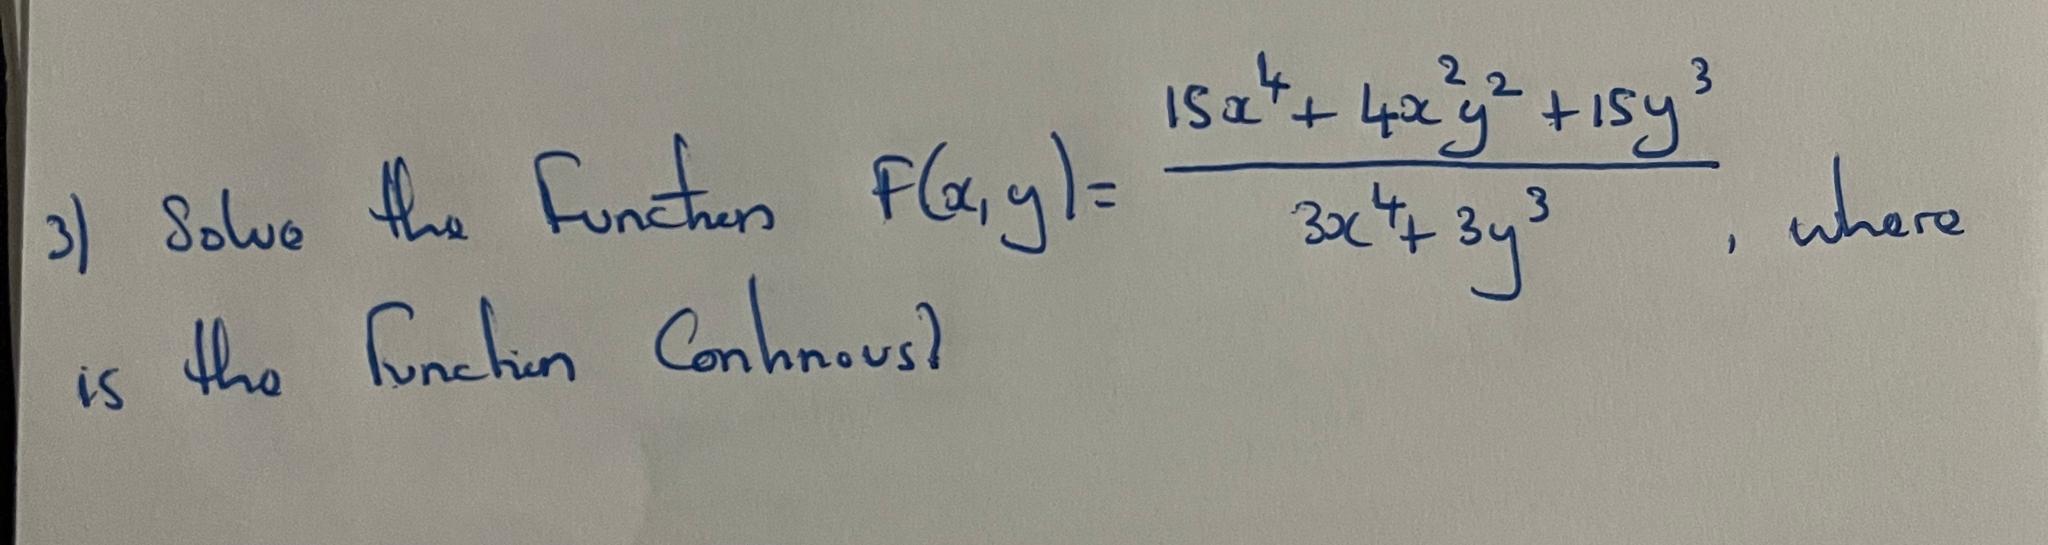 3) Solve the function F(x,y) = (15x⁴ + 4x²y² + 15y³)/(3x⁴ + 3y³), where
is the function Continous?